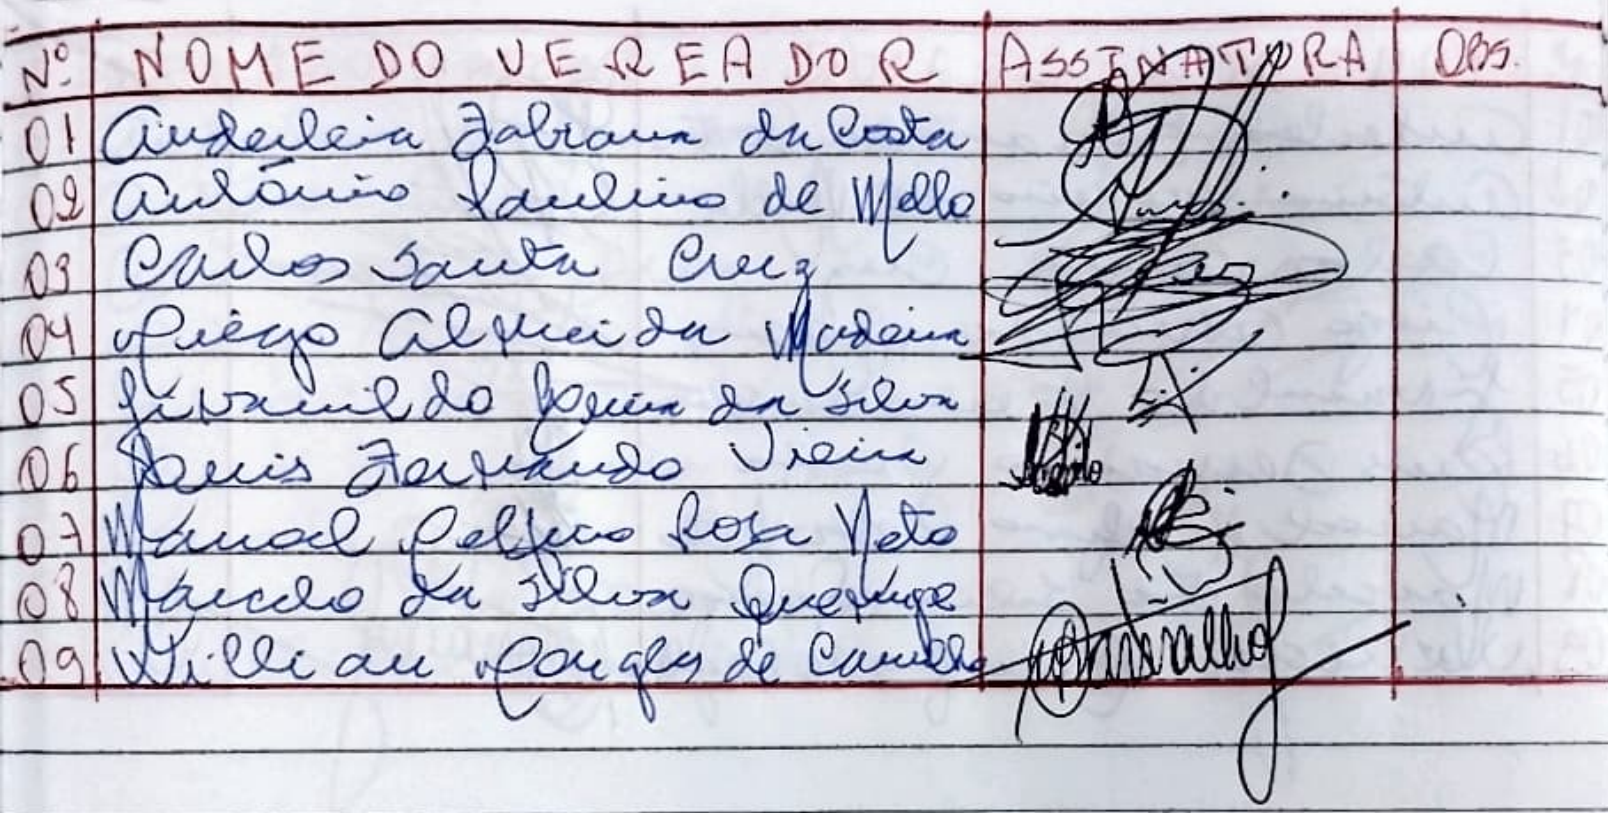 Nº NOME DO VEREADOR ASSINATURA OBS.
01 Anderleia Fabiana da Costa
02 Antônio Paulino de Mello
03 Carlos Santa Cruz
04 Diego Almeida Madeira
05 Givanildo da Silva
06 Luis Fernando Vieira
07 Manoel Rosa Neto
08 Marcelo da Silva
09 Willian Douglas de Carvalho Carvalho